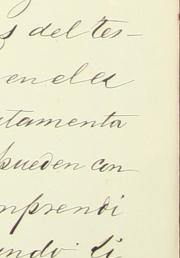 del tes-
en el es
tamenta
pueden con
mprendi
ndo. Si